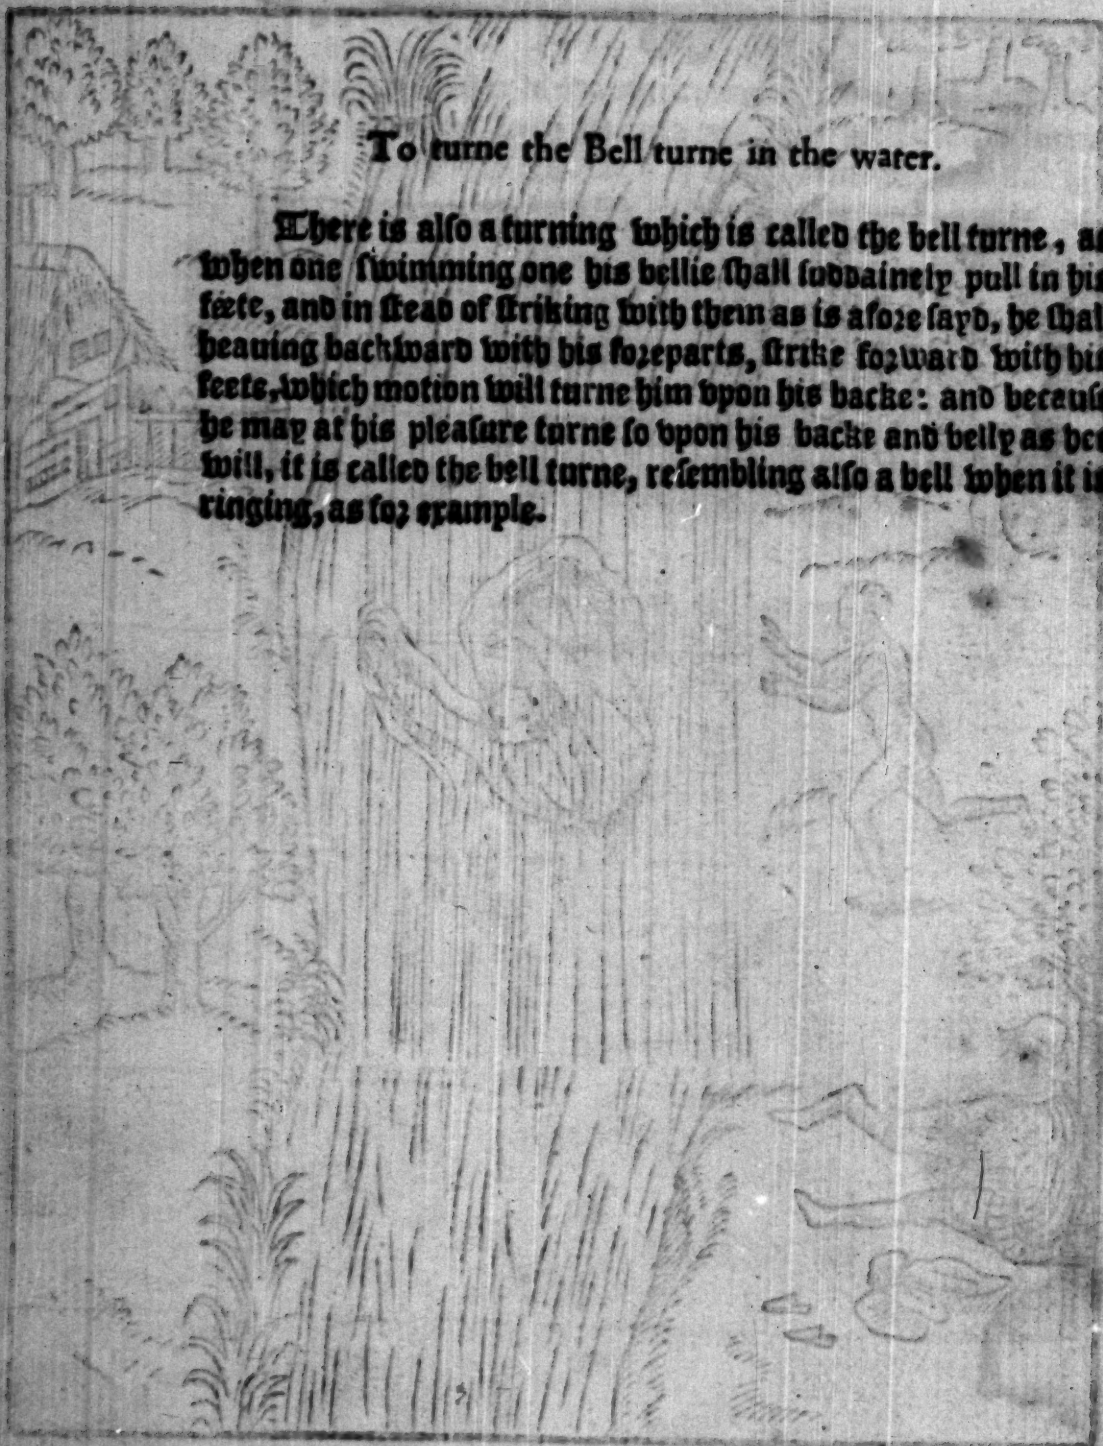 To turne the Bell turne in the water.
There is also a turning which is called the bell turne, as
when one swimming one his bellie shall suddainely pull in his
féete, and in stead of striking with them as is afore sayd, he shal
heauing backward with his foreparts, strike forward with his
feete, which motion will turne him vpon his backe: and becaus
he may at his pleasure turne so vpon his backe and belly as hee
will, it is called the bell turne, resembling also a bell when it is
ringing, as for example.